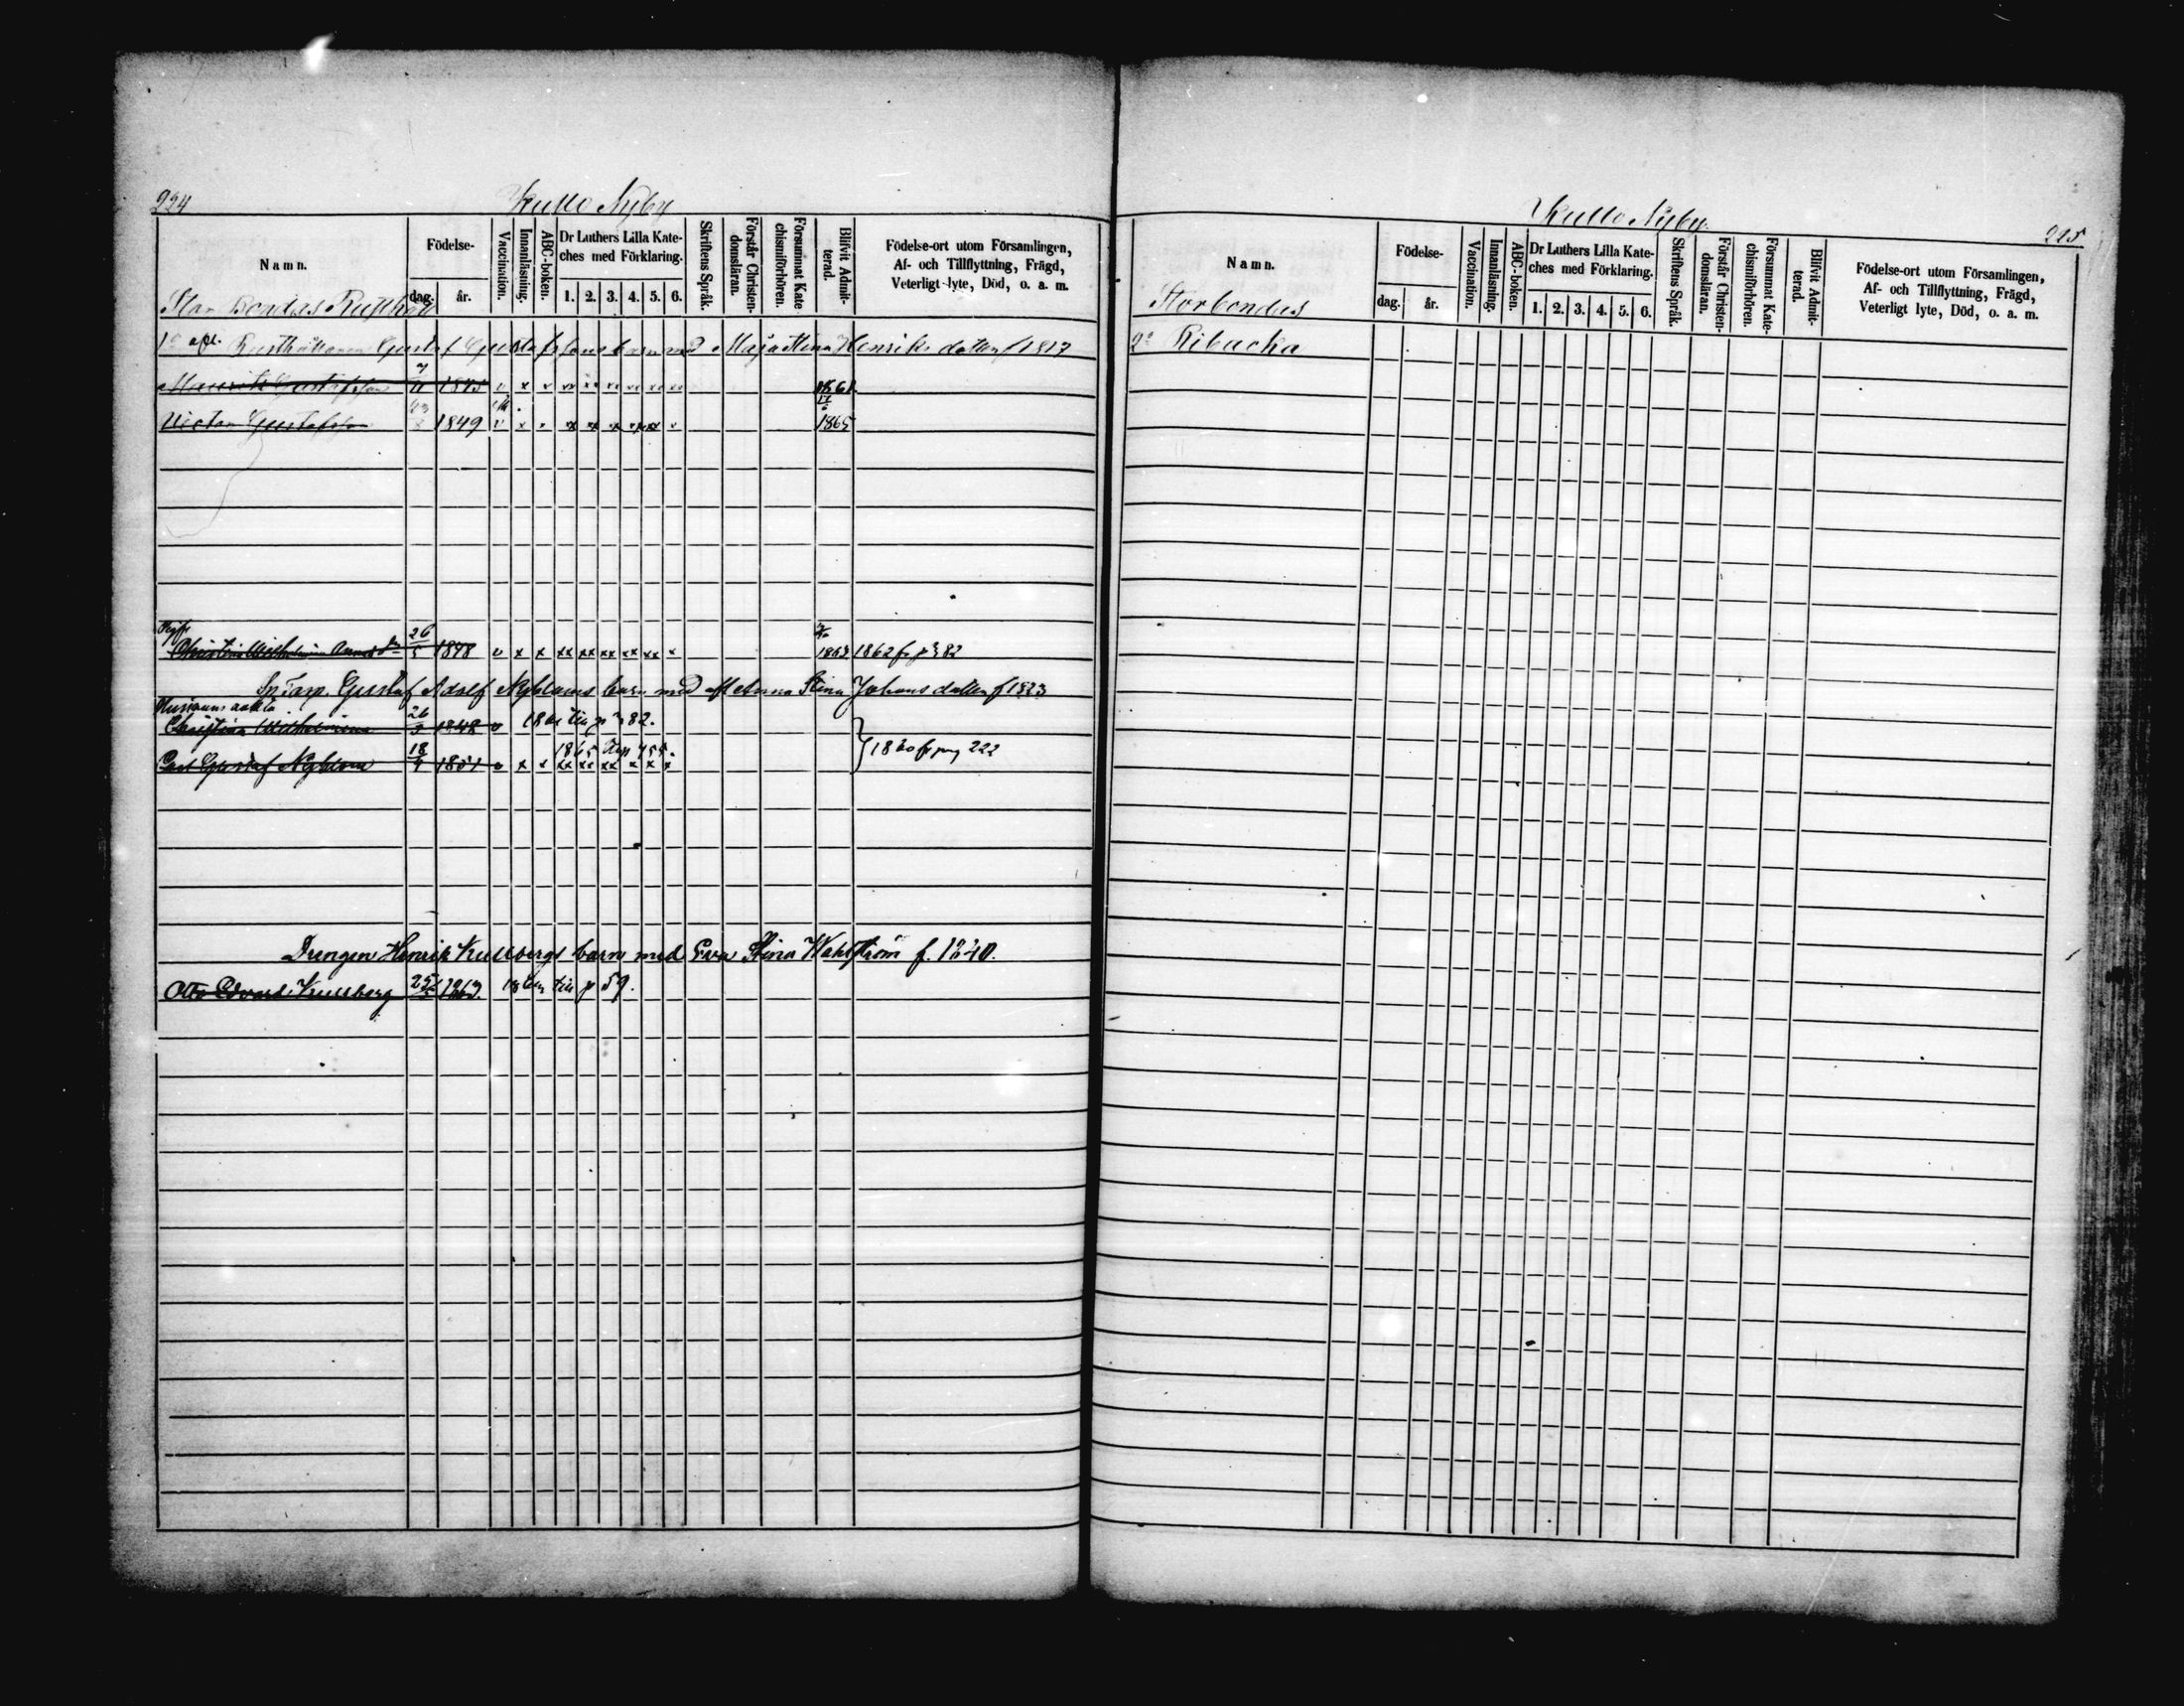 224
Kullo Nyby
Namn.
Födelse-
dag.
år.
Vaccination.
Innanläsning.
ABC-boken.
Dr Luthers Lilla Kate-
ches med Förklaring.
1. 2. 3. 4. 5. 6.
Skriftens Språk.
Förstår Christen-
domsläran.
Försummat Kate-
chismiförhören.
Blifvit Admit-
terad.
Födelse-ort utom Församlingen,
Af- och Tillflyttning, Frägd,
Veterligt lyte, Död, o. a. m.
Stor Bondas Rusthåll
1o afl. Rusthållaren Gustaf Gustafssons barn med Maja Stina Henriksdotter f 1817
Gustafsson 1845 v x x xx xx xx xx xx xx 1861
Victor Gustafsson 23 1849 v x x xx xx xx xx xx x 1865
Christina Wilhelmina 26/5 1848 v x x xx xx xx xx xx x 1862 fr p 382
Gustaf Adolf Nybloms barn med afl Anna Stina Johansdotter f 1823
Christina Wilhelmina 26/5 1848 v
till p 382.
1865 455.
Carl Gustaf Nyblom 18 1851 v x x xx xx xx x x x
} 1860 fr pag 222
Drengen Henrik Kullbergs barn med Eva Stina Wahlström f. 1840.
Otto Edvard Kullberg 25/5 1863. till p 59.
Kullo Nyby.
225
Namn.
Födelse-
dag.
år.
Vaccination.
Innanläsning.
ABC-boken.
Dr Luthers Lilla Kate-
ches med Förklaring.
1. 2. 3. 4. 5. 6.
Skriftens Språk.
Förstår Christen-
domsläran.
Försummat Kate-
chismiförhören.
Blifvit Admit-
terad.
Födelse-ort utom Församlingen,
Af- och Tillflyttning, Frägd,
Veterligt lyte, Död, o. a. m.
Storbondas
2o Ribacka